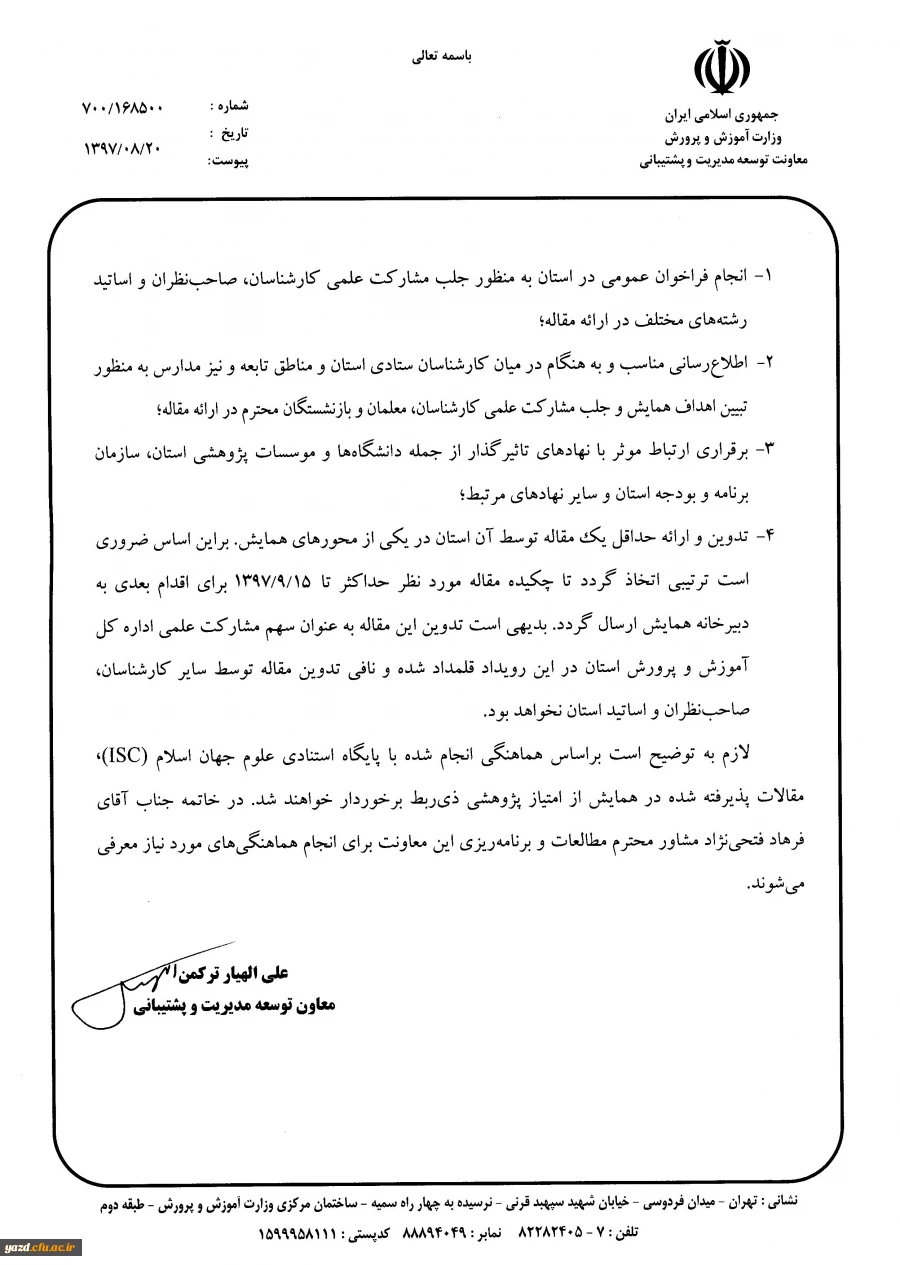 باسمه تعالی
جمهوری اسلامی ایران
وزارت آموزش و پرورش
معاونت توسعه مدیریت و پشتیبانی
شماره : ۷۰۰/۱۶۸۵۰۰
تاریخ : ۱۳۹۷/۰۸/۲۰
پیوست:
۱- انجام فراخوان عمومی در استان به منظور جلب مشارکت علمی کارشناسان، صاحب‌نظران و اساتید
رشته‌های مختلف در ارائه مقاله؛
۲- اطلاع‌رسانی مناسب و به هنگام در میان کارشناسان ستادی استان و مناطق تابعه و نیز مدارس به منظور
تبیین اهداف همایش و جلب مشارکت علمی کارشناسان، معلمان و بازنشستگان محترم در ارائه مقاله؛
۳- برقراری ارتباط موثر با نهادهای تاثیرگذار از جمله دانشگاه‌ها و موسسات پژوهشی استان، سازمان
برنامه و بودجه استان و سایر نهادهای مرتبط؛
۴- تدوین و ارائه حداقل یک مقاله توسط آن استان در یکی از محورهای همایش. براین اساس ضروری
است ترتیبی اتخاذ گردد تا چکیده مقاله مورد نظر حداکثر تا ۱۳۹۷/۹/۱۵ برای اقدام بعدی به
دبیرخانه همایش ارسال گردد. بدیهی است تدوین این مقاله به عنوان سهم مشارکت علمی اداره کل
آموزش و پرورش استان در این رویداد قلمداد شده و نافی تدوین مقاله توسط سایر کارشناسان،
صاحب‌نظران و اساتید استان نخواهد بود.
لازم به توضیح است براساس هماهنگی انجام شده با پایگاه استنادی علوم جهان اسلام (ISC)،
مقالات پذیرفته شده در همایش از امتیاز پژوهشی ذی‌ربط برخوردار خواهند شد. در خاتمه جناب آقای
فرهاد فتحی‌نژاد مشاور محترم مطالعات و برنامه‌ریزی این معاونت برای انجام هماهنگی‌های مورد نیاز معرفی
می‌شوند.
علی الهیار ترکمن
معاون توسعه مدیریت و پشتیبانی
نشانی : تهران - میدان فردوسی - خیابان شهید سپهبد قرنی - نرسیده به چهار راه سمیه - ساختمان مرکزی وزارت آموزش و پرورش - طبقه دوم
تلفن : ۷ - ۸۲۲۸۲۴۰۵ نمابر : ۸۸۸۹۴۰۴۹ کدپستی : ۱۵۹۹۹۵۸۱۱۱
yazd.cfu.ac.ir